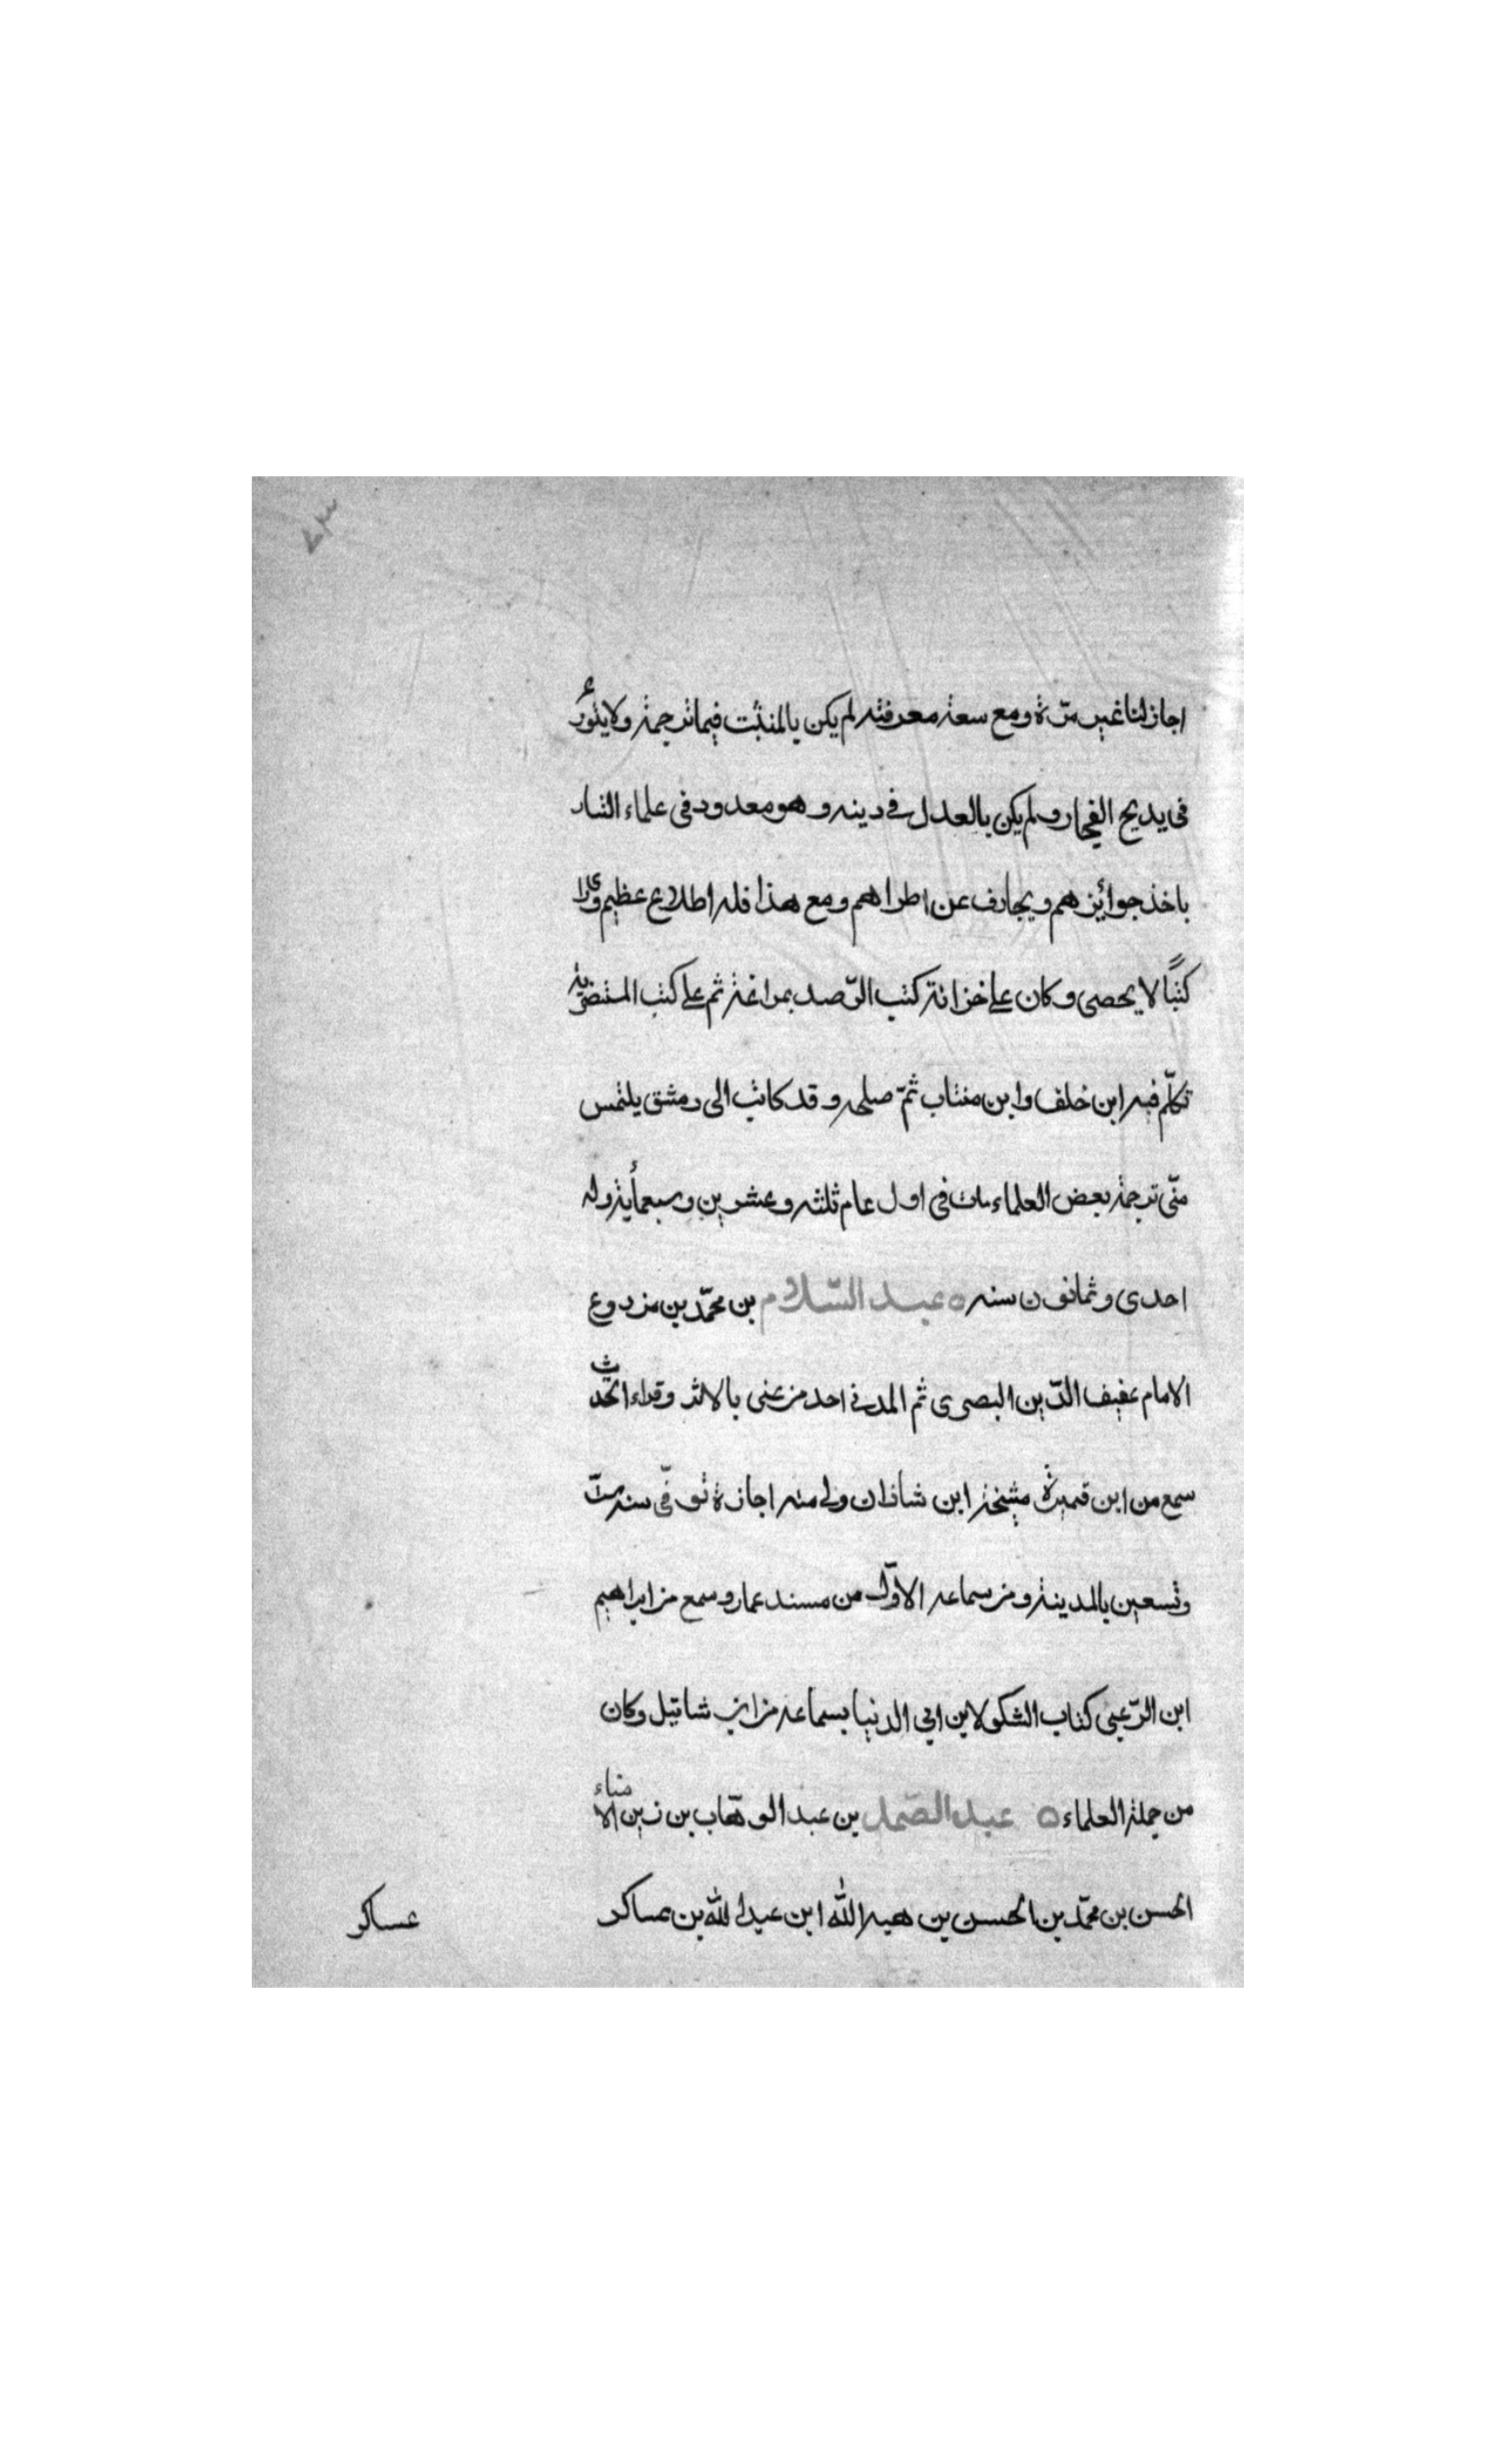 ٧٣
اجاز لنا غير مرّة ومع سعة معرفته لم يكن بالمتثبت فيما ترجمه ولا يتورع
فى يديح الفجار ولم يكن بالعدل فى دينه وهو معدود فى علماء التتار
ياخذ جوائزهم ويجازف عن اطراهم ومع هذا فله اطلاع عظيم
كتبًا لا يحصى وكان على خزانة كتب الرّصد بمراغة ثم على كتب المستنصرية
تكلّم فيه ابن خلف وابن منتاب ثمّ صلحه وقد كاتب الى دمشق يلتمس
منّى ترجمة بعض العلماء مات فى اول عام ثلثه وعشرين وسبعمأية وله
احدى وثمانون سنه ٥ عبد السّلام بن محمّد بن مزروع
الامام عفيف الدّين البصرى ثم المدنى احد من عنى بالاثر وقراء الحديث
سمع من ابن قميرة مشيخة ابن شاذان ولى منه اجازة توفّى سنه ستّ
وتسعين بالمدينة ومن سماعه الاوّل من مسند عمار وسمع من ابراهيم
ابن الرّعبى كتاب الشكر لابن ابى الدنيا بسماعه من ابن شاتيل وكان
من جملة العلماء ٥ عبد الصّمد بن عبد الوهّاب بن زين الامناء
الحسن بن محمّد بن الحسن بن هبه الله ابن عبد الله بن عساكر
عساكر